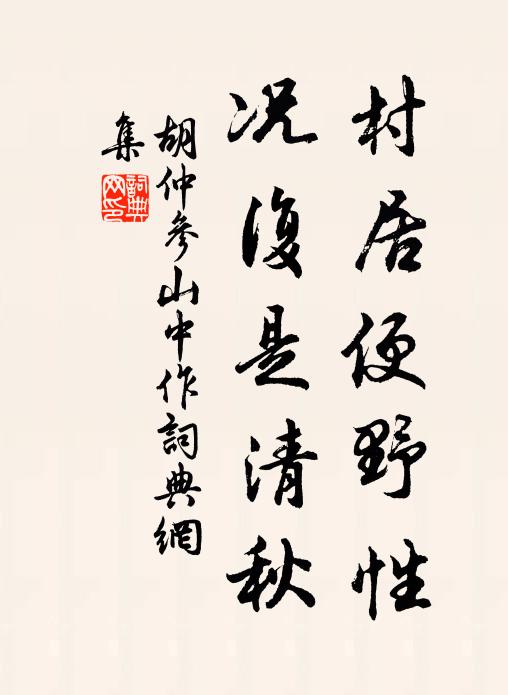 村居便野性
况復是清秋
胡仲參山中作詞典網
集
詞典網印